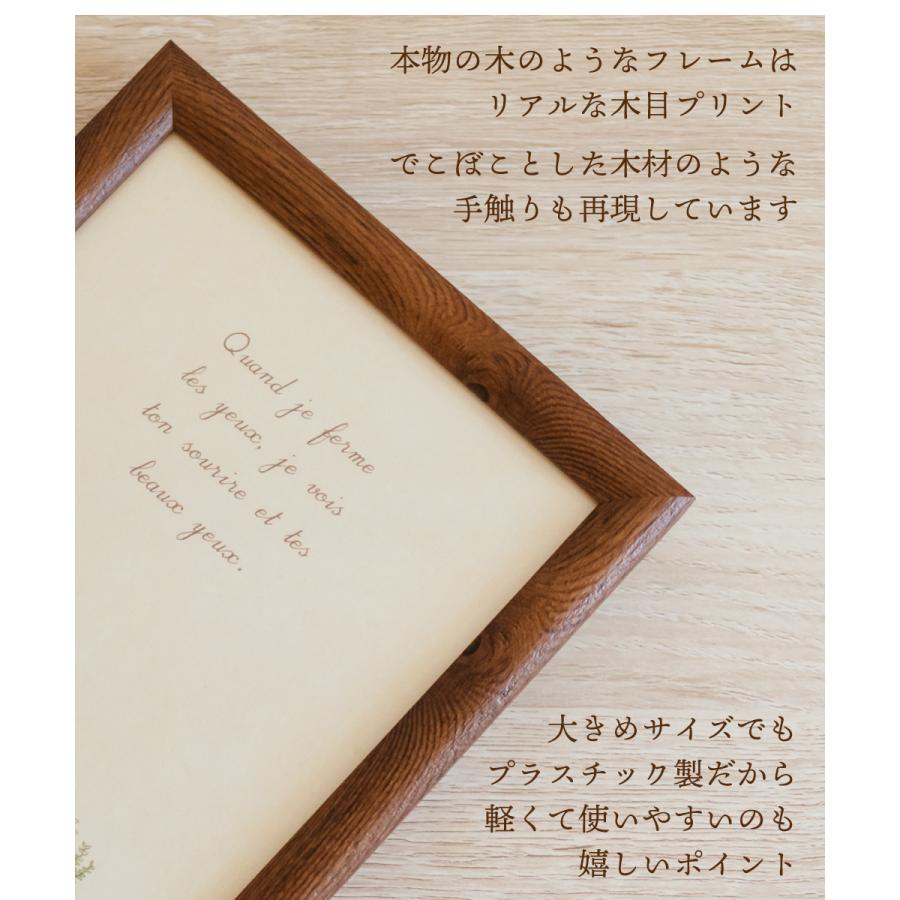 本物の木のようなフレームは
リアルな木目プリント
でこぼことした木材のような
手触りも再現しています
Quand je ferme
les yeux, je vois
ton sourire et tes
beaux yeux.
大きめサイズでも
プラスチック製だから
軽くて使いやすいのも
嬉しいポイント